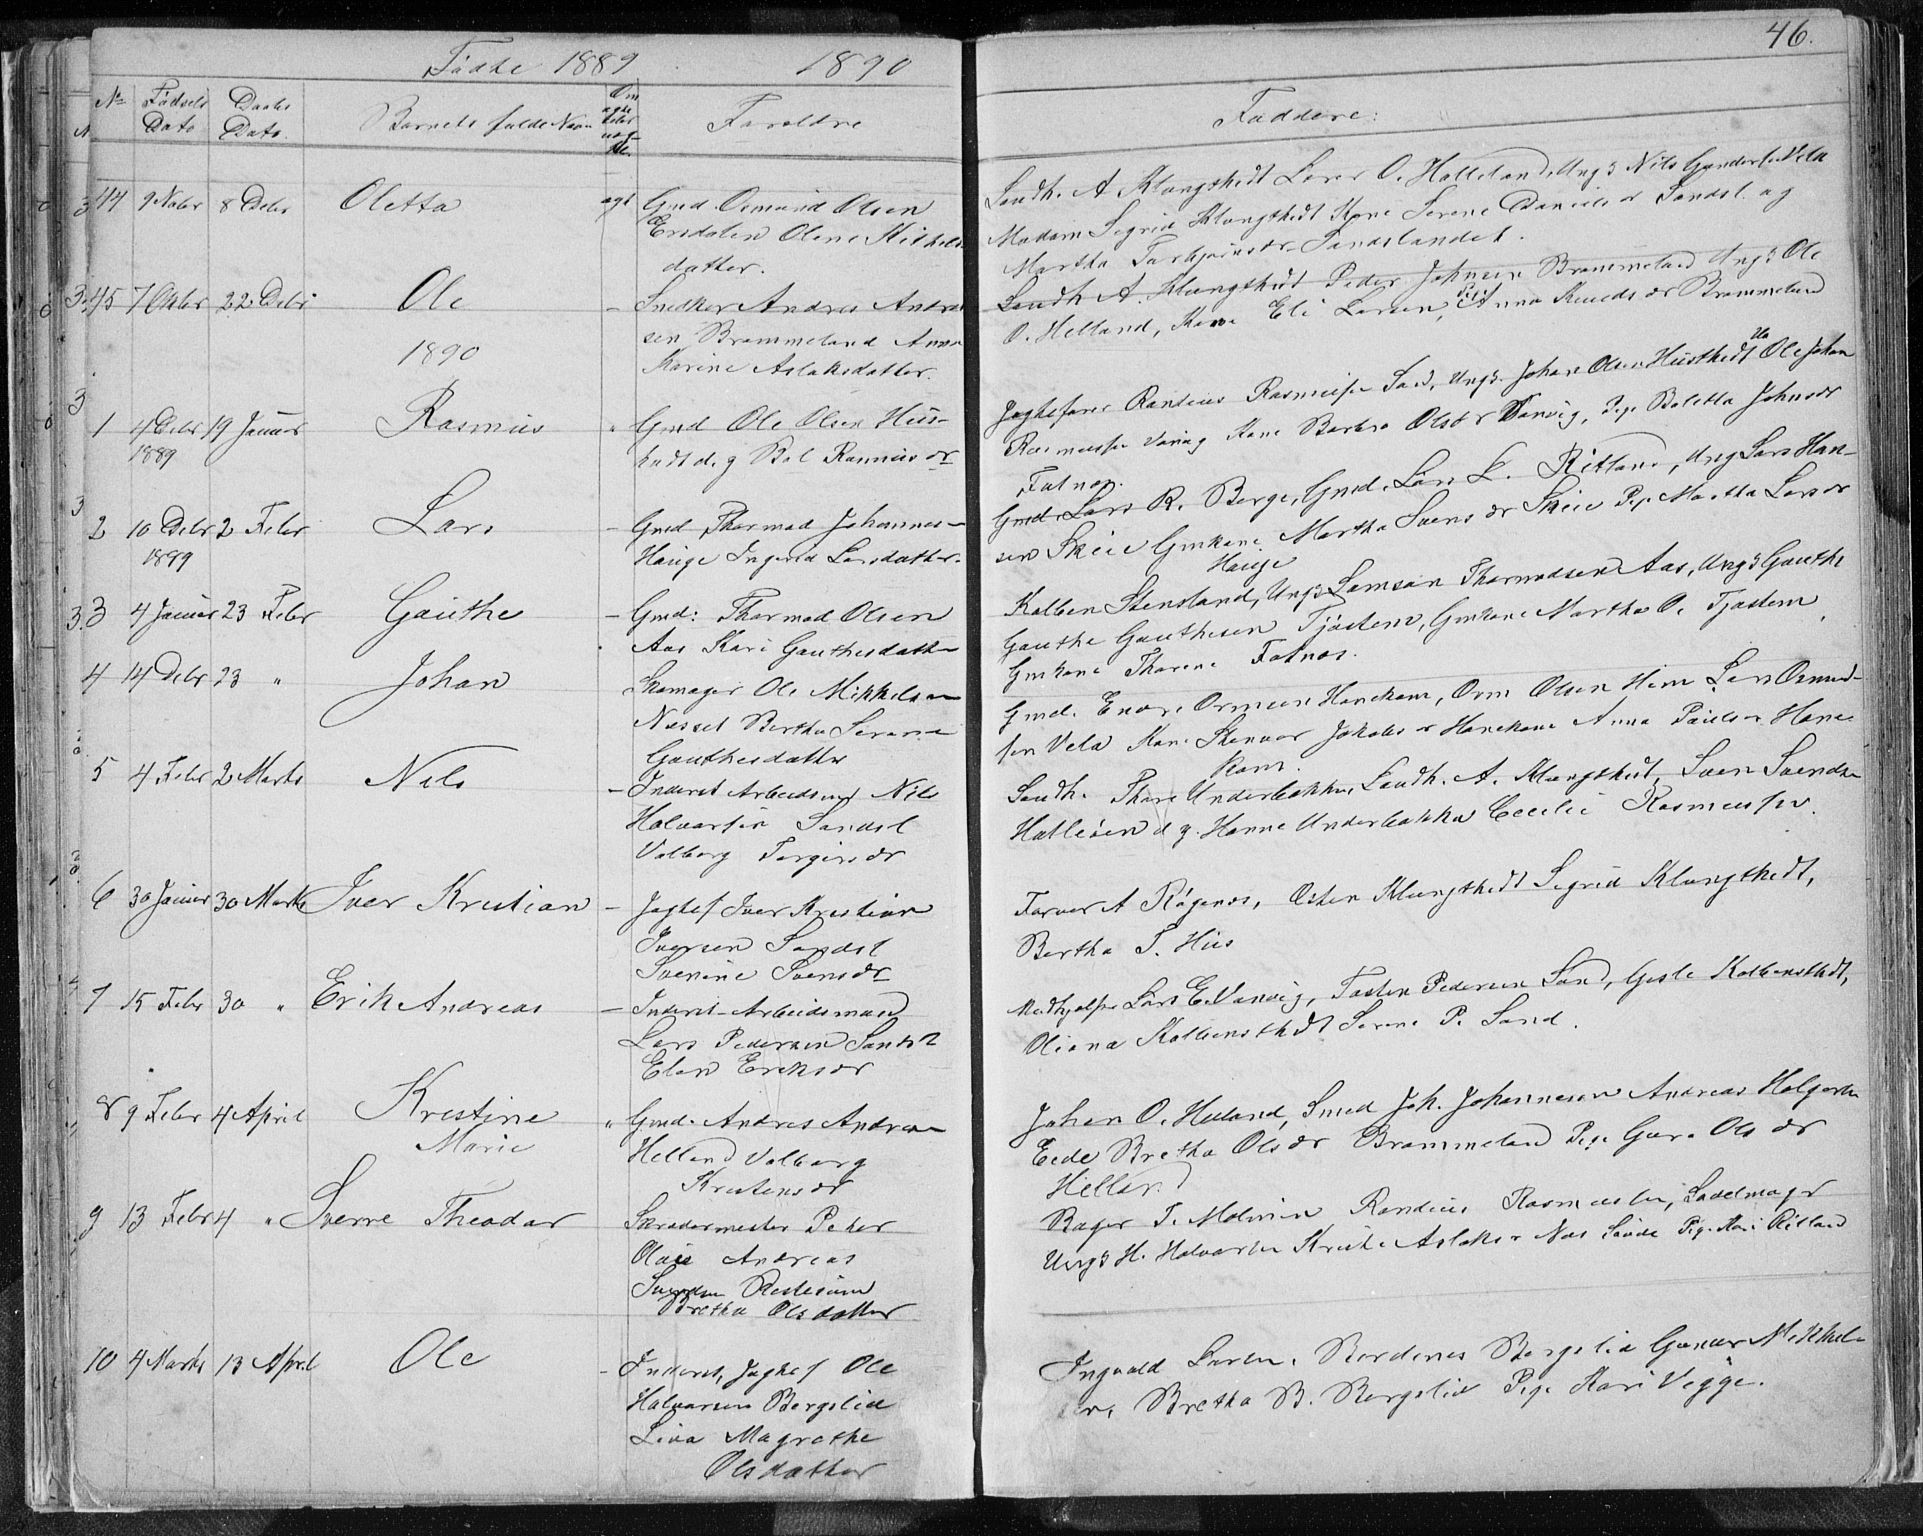 46.
Fødte 1889 1890
No Fødsels Dato Daabs Dato. Barnets fulde Navn Forældre
Faddere:
44 9 Nober 8 Debr Oletta agt Gmd. Osmund Olsen
datter.
Klungtvedt Lars O. Helleland, Ungk Nils
Madam Sigrid Klungtvedt Kone Serene Daniels dr Sandsl. og
Martha Sandslandet.
45 7 Okbr 22 Debr Ole - Snedker Andres Andre
sen Brommeland Anna
Karine Aslaksdatter.
A. Klungtvedt Peder Johnsen Brommeland Ungk Ole
O. Helland, Kone Eli Larsen, Pige Anna Knudsdr Brommeland
1890
1 4 Debr 19 Januar Rasmus " Gmd Ole Olsen Hus-
1889
Jagtefører Randeus Rasmussen Sand, Ungk. Johan Olsen Ole Johan
Rasmussen Vanvig Kone Barbra Olsdr Vanvig, Pige Boletta Johnsdr
2 10 Debr 2 Febr Lars - Gmd Thormod Johannes-
1899 Hauge Ingerid Larsdatter.
Gmd. Lars R. Berge, Gmd. Lars L. Ritland, Ung Lars Han-
sen Skeie Gmkone Martha Svensdr Skeie Pige Martha Larsdr
Hauge
3 4 Januar 23 Febr Gauthe - Gmd: Thormod Olsen
Aas Kari Gauthesdatter
Kolben Stensland, Ungk Samson Thormodsen Aas, Ungk Gauthe
Gauthe Gauthesen Tjøstem, Gmkone Martha O. Tjøstem,
Gmkone Thorene
4 14 Debr 23 " Johan Skomager Ole Mikkelsen
Nesset Bertha Serene
Gauthesdatter
Gmd. Enor Ormsen Hanekam, Orm Olsen Hiim Lars Osmund-
sen Vela Kone Stenvor Jakobsdr Hanekam Anna Paulsdr Hane
kam.
5 4 Febr 2 Marts Nils - Inderst Arbeidsmd Nils
Halvorsen Sandsl
Valborg Torgersdr
Thore Underbakke, A. Klungtvedt, Sven Svendsen
Hanne Underbakke Cecilie Rasmussen.
6 30 Januar 30 Marts Iver Kristian - Jagtef Iver Kristian
Iversen Sandsl
Svenine Svensdr
Farver A Røgenes, Østen Klungtvedt Sigrid Klungtvedt,
Bertha T. Hus
7 15 Febr 30 " Erik Andreas - Inderst Arbeidsmand
Lars Pedersen Sandsl
Elen Eriksdr
Medhjelper Lars E. Vanvig, Tosten Pedersen Sand, Gisle Kolbenstvedt,
Oliana Kolbenstvedt Serene P. Sand.
8 9 Febr 4 April Kristine " Gmd. Andres Andresen
Marie Helland Valborg
Kristensdr
Johan O. Helland, Smed Joh. Johannesen Andreas Holgersen
Eide Bretha Olsdr Brommeland Pige Guro Olsdr
Helland
9 13 Febr 4 " Sverre Theodor Skredermester Peter
Olaus Andreas
Svendsen
Bretha Olsdatter
Bager T. Malmin Randeus Rasmussen, Sadelmager
Ungk H. Halvorsen Aslaksdr Nes Saude Pige Kari Ritland
10 4 Marts 13 April Ole - Inderst, Jagtef Ole
Halvorsen Bergelid
Lina Magrethe
Olsdatter
Ingvald Larsen, Bergelid Gunar Mikkel-
sen, Bretha B. Bergelid Pige Kari Vegge.